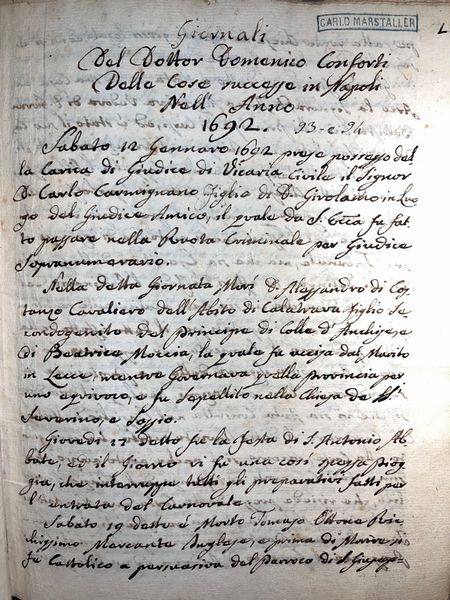 CARLO MARSTALLER
Giornali
Del Dottor Domenico Conforti
Delle Cose successe in Napoli
Nell' Anno
1692. 93. e. 94
Sabato 12 Gennaro 1692 prese possesso del
la Carica di Giudice di Vicaria Civile il Signor
D. Carlo Carmignano figlio di D. Girolamo, in Luo
go del Giudice Amico, il quale da S. Ecca fu fat
to passare nella Ruota Criminale per Giudice
Sopranumerario.
Nella detta Giornata Morì D. Alessandro di Cos
tanzo Cavaliero dell'Abito di Calatrava figlio Se
condogenito del Principe di Colle d'Anchise, e
di Beatrice Moccia, la quale fu uccisa dal Marito
in Lecce, mentre Governava quella Provincia per
uno equivoco, e fu Sepellito nella Chiesa de SS
Severino, e Sossio.
Giovedì 17 detto fu la festa di S. Antonio Ab
bate, ed il Giorno vi fu una così spessa piog
gia, che interruppe tutti gli preparativi fatti per
l'entrata del Carnovale.
Sabato 19 detto è Morto Tomaso Ottone Ric
chissimo Mercante Inglese, e prima di Morire si
fe Cattolico a persuasiva del Parroco di S. Giusep=